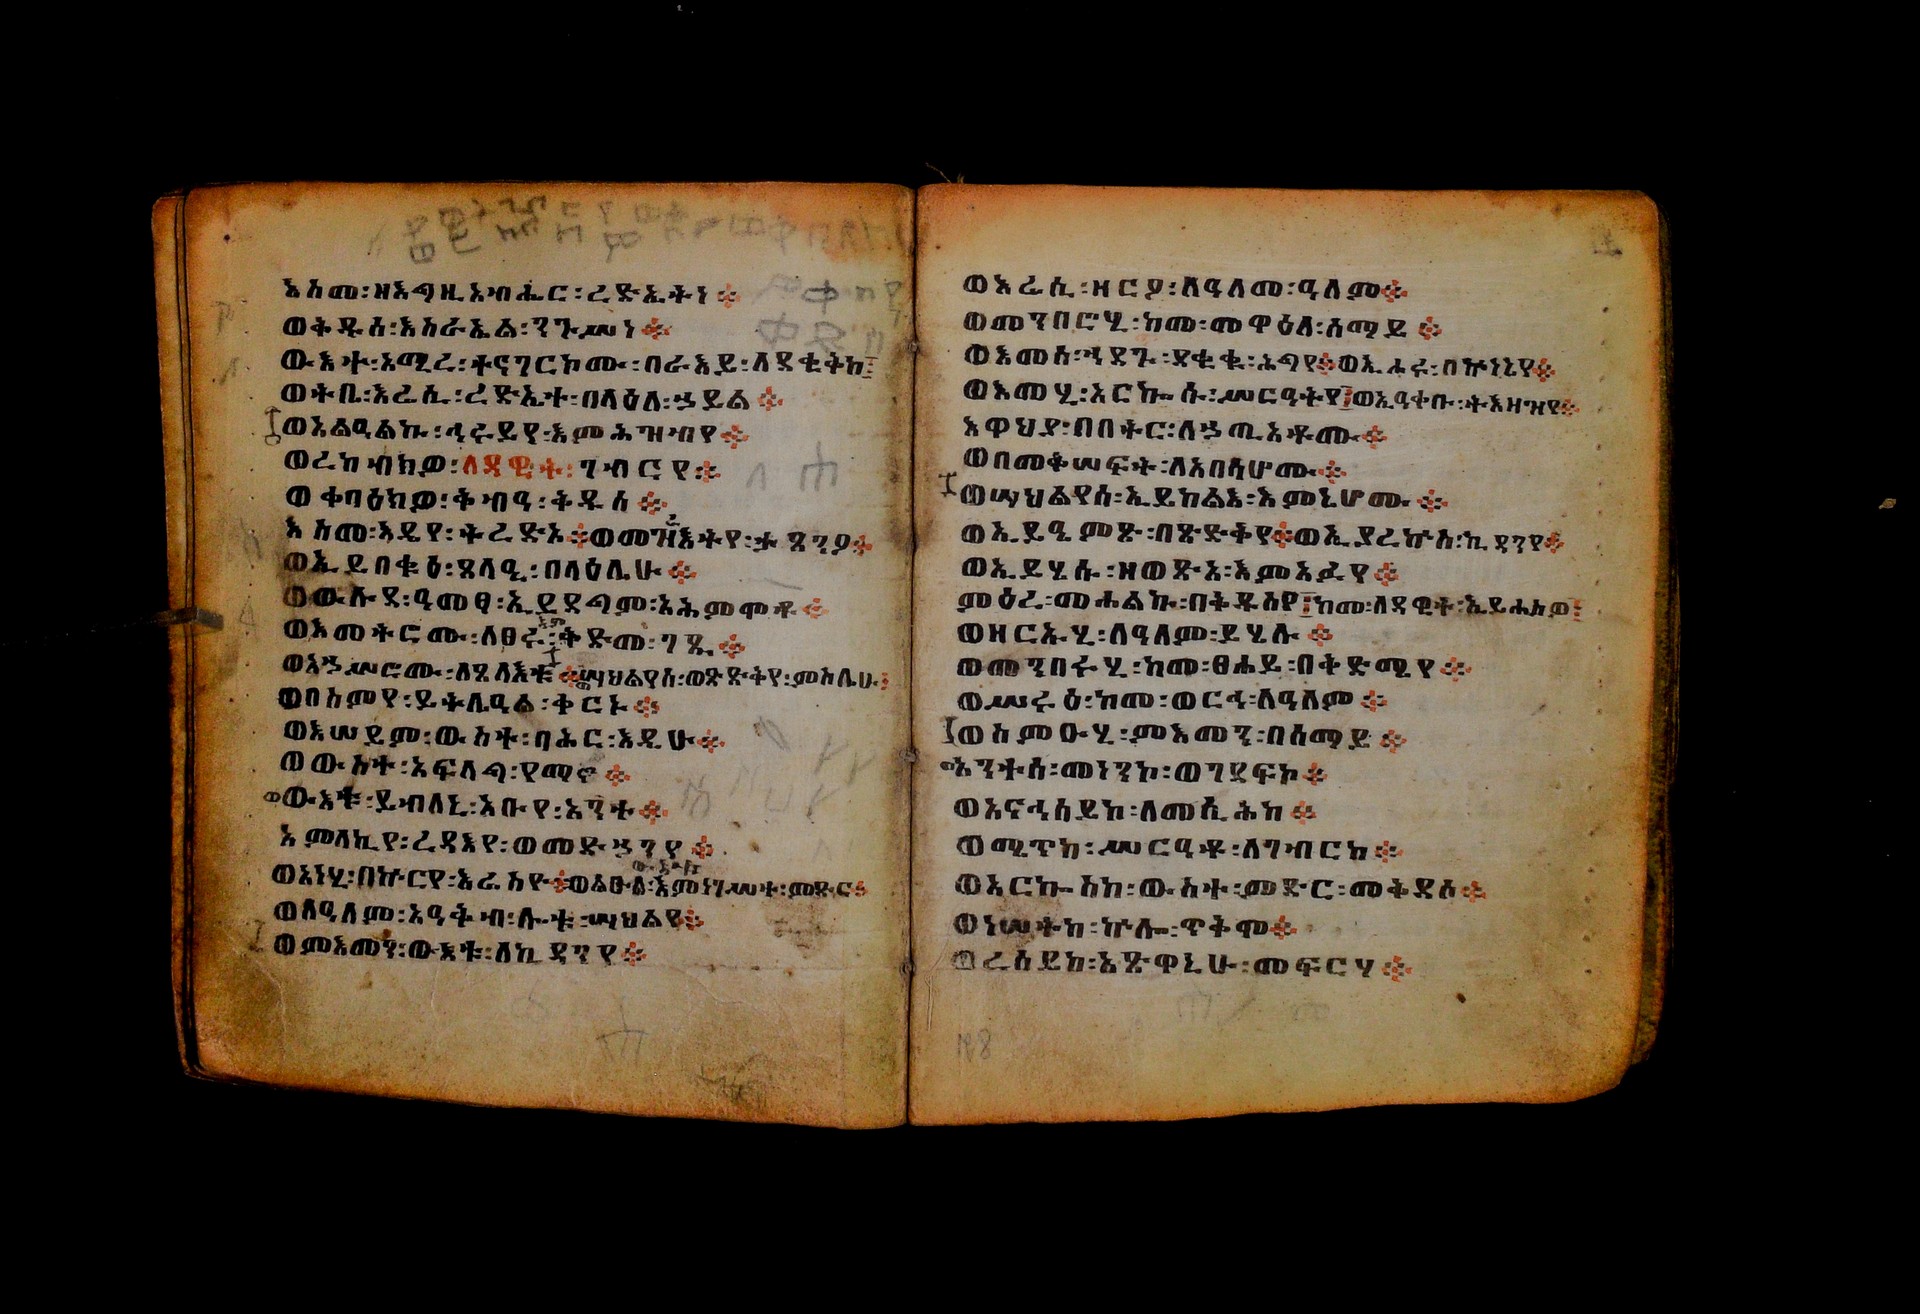 እስመ፡ዘእግዚአብሔር፡ረድኤትነ።
ወቅዱሰ፡እስራኤል፡ንጉሥነ።
ውእተ፡አሚረ፡ተናገርኮሙ፡በራእይ፡ለደቂቅከ፤
ወትቤ፡እሬሲ፡ረድኤተ፡በላዕለ፡ኃይል።
ወአልዓልኩ፡ኅሩይየ፡እምሕዝብየ።
ወረከብክዎ፡ለዳዊት፡ገብርየ።
ወቀባዕክዎ፡ቅብዓ፡ቅዱሰ።
እስመ፡እዴየ፡ትረድኦ።ወመዝራእትየ፡ታጸንዖ።
ወኢይበቁዕ፡ጸላዒ፡በላዕሌሁ።
ወውሉደ፡ዓመፃ፡ኢይደግም፡አሕምሞቶ።
ወእመትሮሙ፡ለፀሩ፡እምቅድመ፡ገጹ።
ወአኃሥሮሙ፡ለጸላእቱ።ወሣህልየሰ፡ወጽድቅየ፡ምስሌሁ፤
ወበስምየ፡ይትሌዓል፡ቀርኑ።
ወእሠይም፡ውስተ፡ባሕር፡እዴሁ።
ወውስተ፡አፍላግ፡የማኖ።
ውእቱ፡ይብለኒ፡አቡየ፡አንተ።
አምላኪየ፡ረዳእየ፡ወመድኃንየ።
ወአነሂ፡በኵርየ፡እሬስዮ።ወልዑል፡ውእቱ፡እምነገሥተ፡ምድር።
ወለዓለም፡አዓቅብ፡ሎቱ፡ሣህልየ።
ወምእመን፡ውእቱ፡ለኪዳንየ።
ወእሬሲ፡ዘርዖ፡ለዓለመ፡ዓለም።
ወመንበሮሂ፡ከመ፡መዋዕለ፡ሰማይ።
ወእመሰ፡ኀደጉ፡ደቂቁ፡ሕግየ።ወኢሖሩ፡በኵነኔየ።
ወእመሂ፡አርኰሱ፡ሥርዓትየ፤ወኢዓቀቡ፡ትእዛዝየ።
እዋህያ፡በበትር፡ለኃጢአቶሙ።
ወበመቅሠፍት፡ለአበሳሆሙ።
ወሣህልየሰ፡ኢይከልእ፡እምኔሆሙ።
ወኢይዔምጽ፡በጽድቅየ።ወኢያረኵስ፡ኪዳንየ።
ወኢይሂሱ፡ዘወፅአ፡እምአፉየ።
ምዕረ፡መሐልኩ፡በቅዱስየ፤ከመ፡ለዳዊት፡ኢይሔስዎ፤
ወዘርኡሂ፡ለዓለም፡ይሄሉ።
ወመንበሩሂ፡ከመ፡ፀሐይ፡በቅድሜየ።
ወሥሩዕ፡ከመ፡ወርኅ፡ለዓለም።
ወስምዑሂ፡ምእመን፡በሰማይ።
ወአንተሰ፡መነንኮ፡ወገደፍኮ።
ወአናኅሰይከ፡ለመሲሕከ።
ወሚጥከ፡ሥርዓቶ፡ለገብርከ።
ወአርኰስከ፡ውስተ፡ምድር፡መቅደሶ።
ወነሠትከ፡ኵሎ፡ጥቅሞ።
ወረሰይከ፡አጽዋኒሁ፡መፍርሃ።